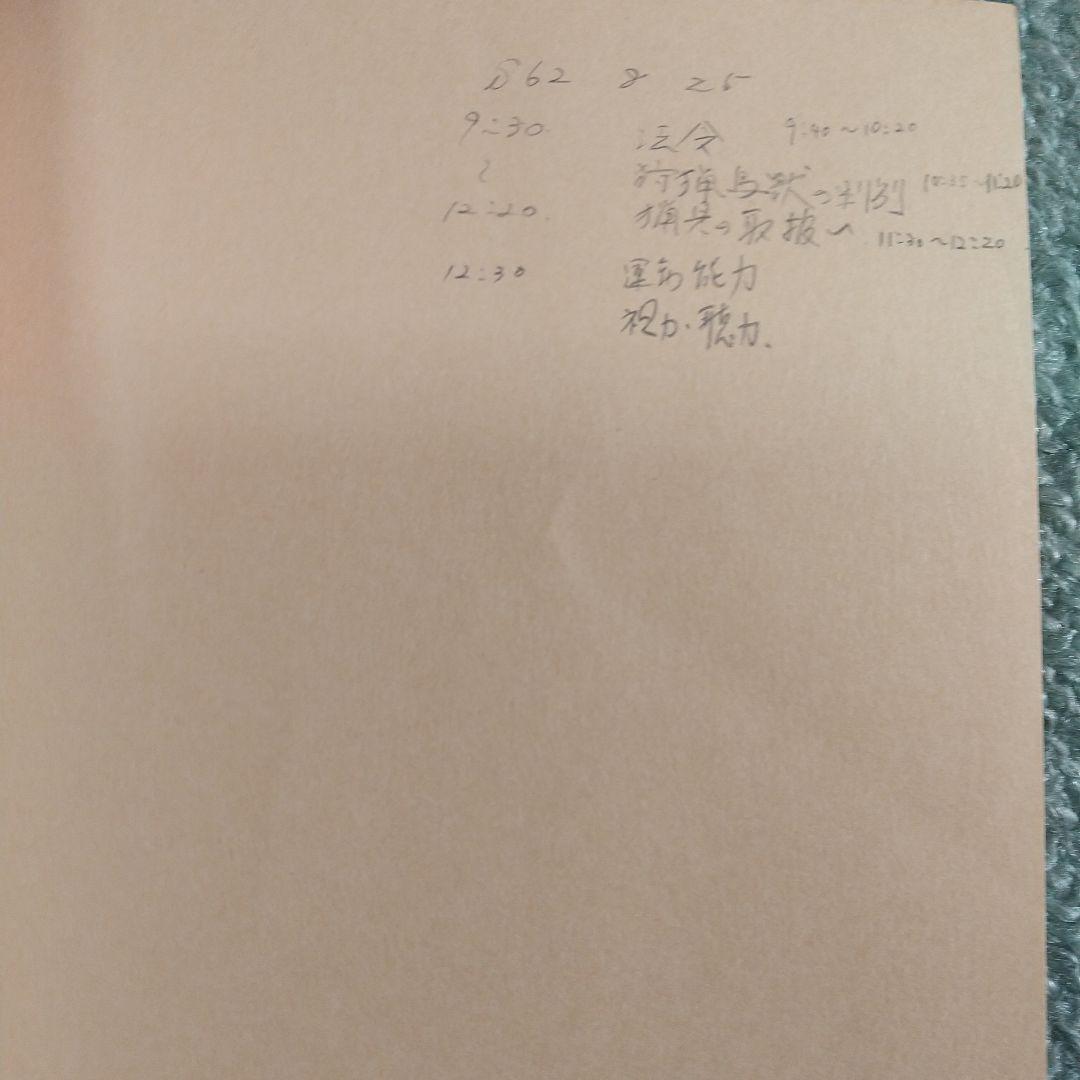 S62 8 25
9:30 法令 9:40～10:20
～ 狩猟鳥獣の判別 10:35～11:20
12:20 猟具の取扱い 11:30～12:20
12:30 運動能力
視力・聴力.